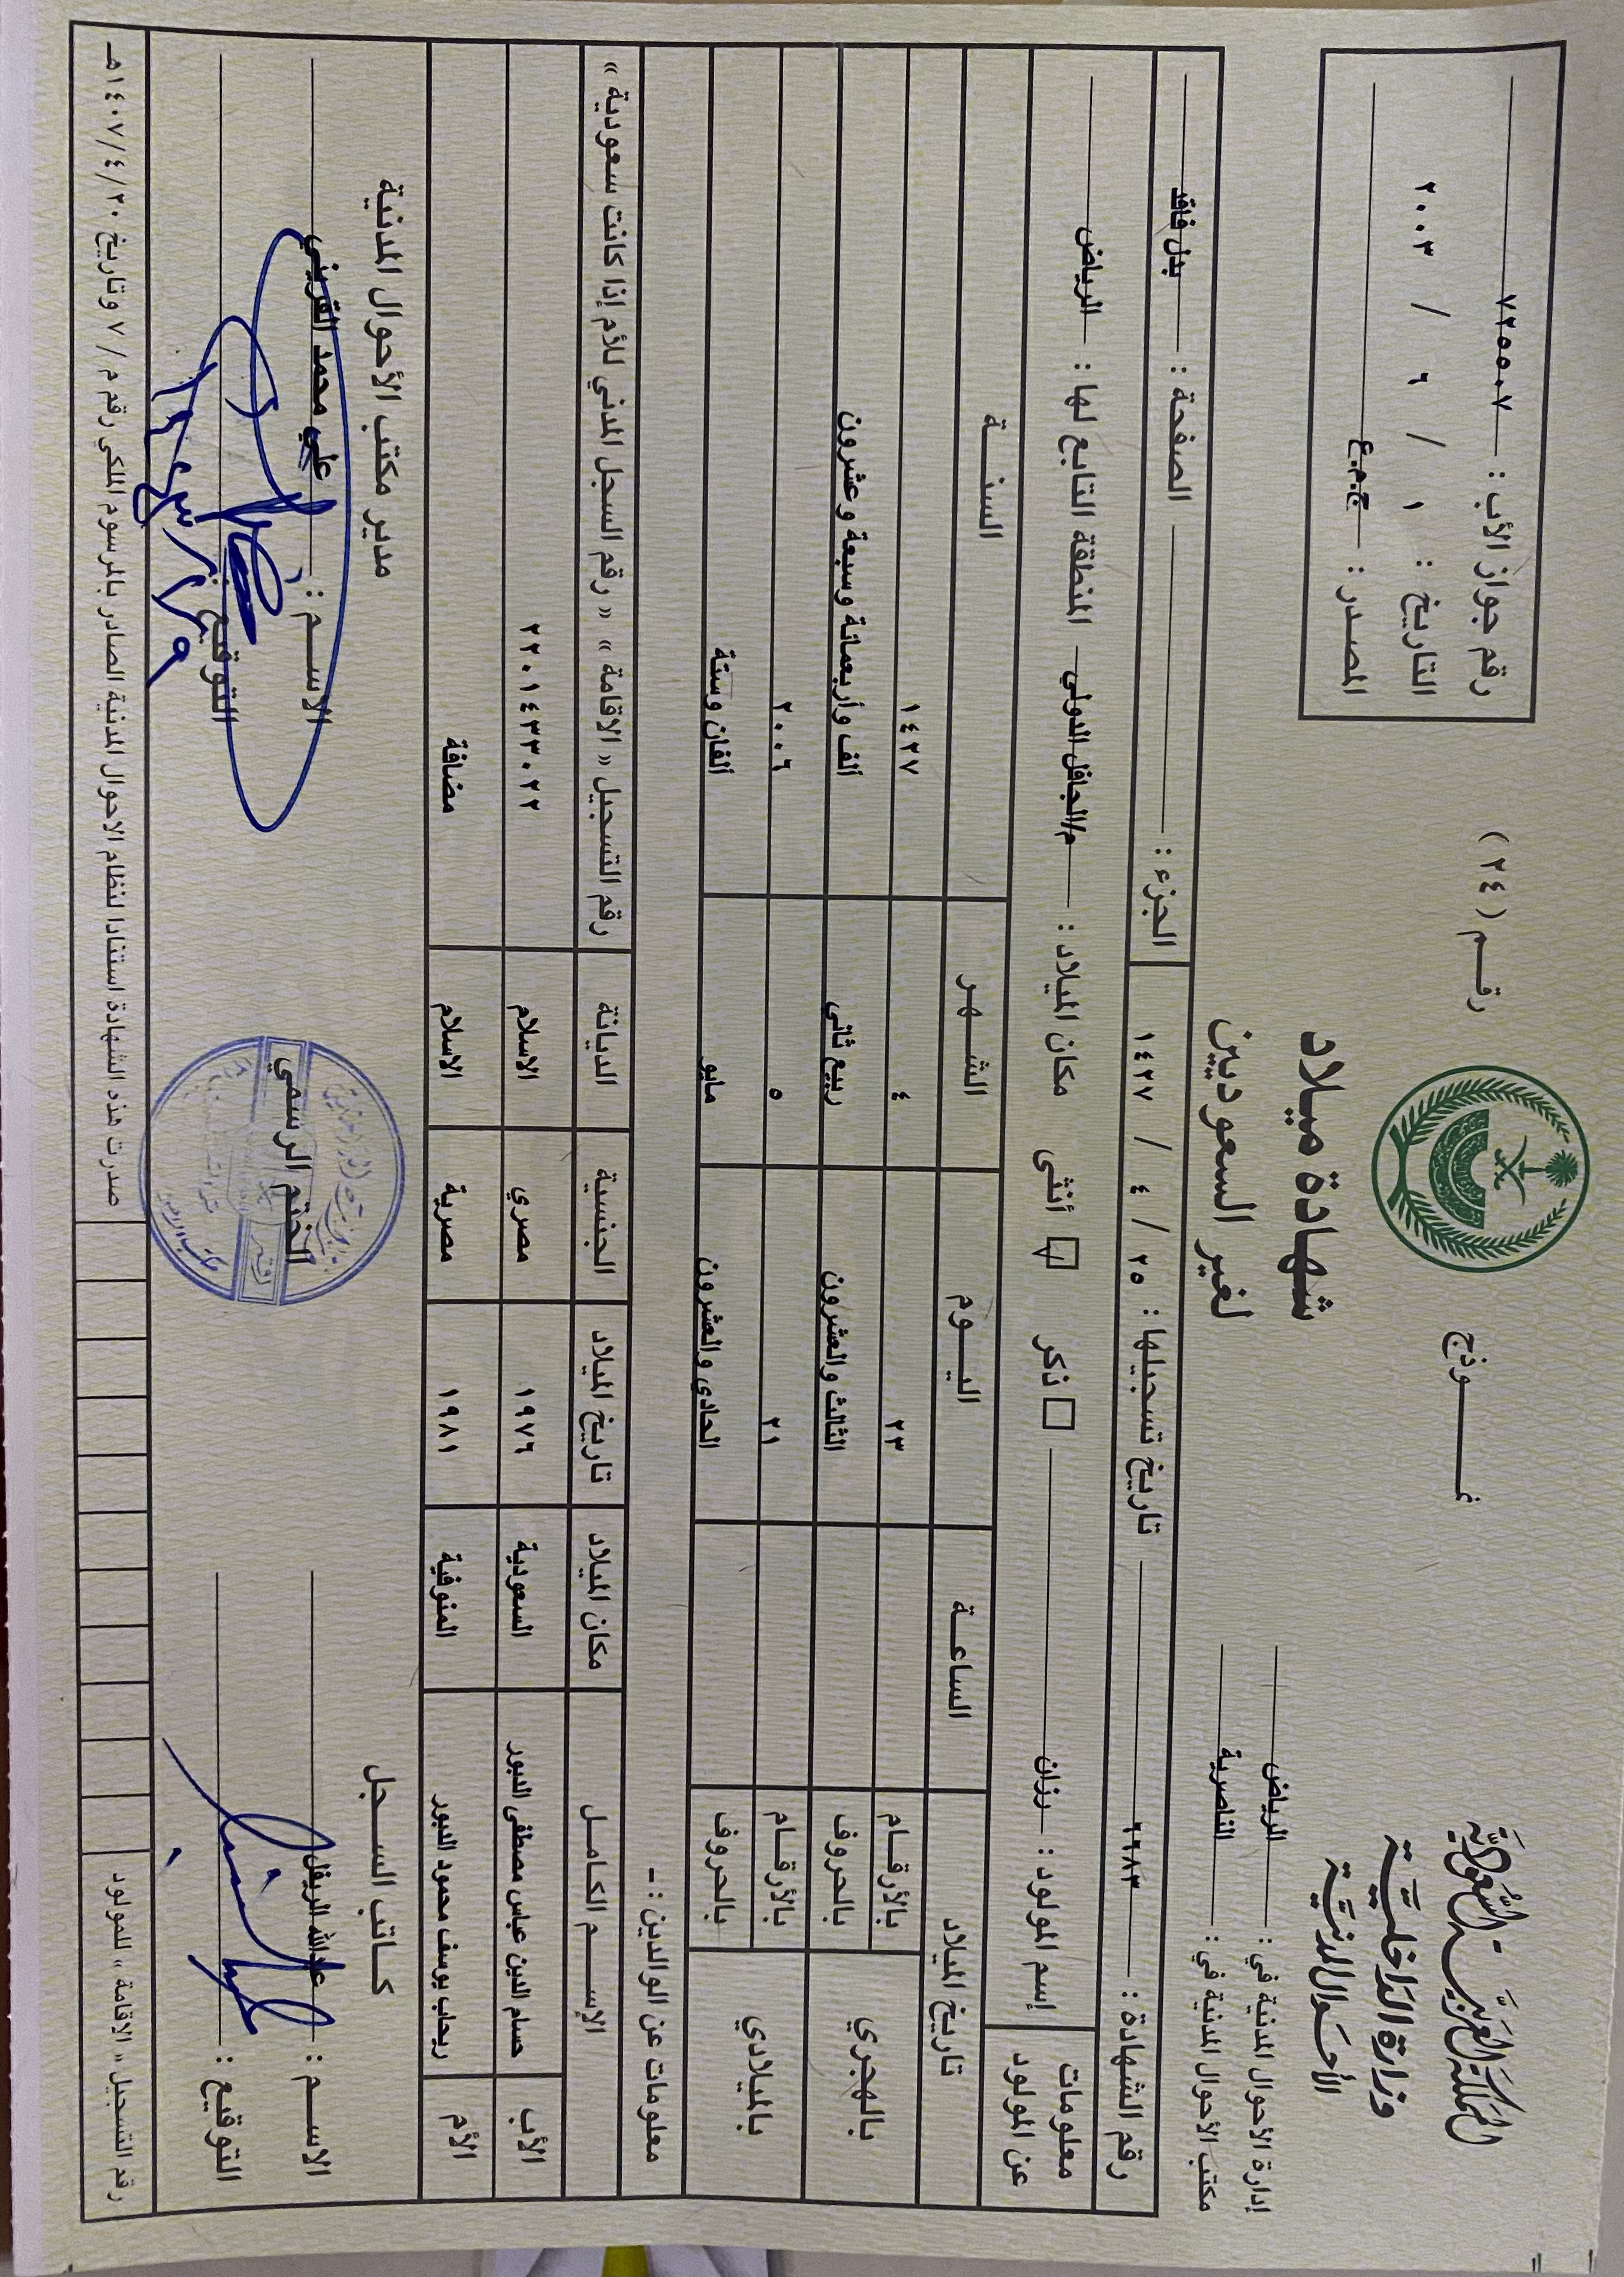 المملكة العربية السعودية
وزارة الداخلية
الأحوال المدنية
إدارة الأحوال المدنية في : الرياض
مكتب الأحوال المدنية في : الناصرية
نموذج
رقم ( ٢٤ )
شهادة ميلاد
لغير السعوديين
رقم جواز الأب : ٧٢٥٥٠٧
التاريخ : ١ / ٦ / ٢٠٠٣
المصدر : ج.م.ع
رقم الشهادة : ٦٦٨٣ تاريخ تسجيلها : ٢٥ / ٤ / ١٤٢٧ الجزء : الصفحة : بدل فاقد
معلومات عن المولود
إسم المولود : رزان ☐ ذكر ☑ أنثى مكان الميلاد : م/الجافل الدولي المنطقة التابع لها : الرياض
تاريخ الميلاد الساعة اليوم الشهر السنة
بالهجري بالأرقام ٢٣ ٤ ١٤٢٧
بالحروف الثالث والعشرون ربيع ثاني ألف وأربعمائة وسبعة وعشرون
بالميلادي بالأرقام ٢١ ٥ ٢٠٠٦
بالحروف الحادي والعشرون مايو ألفان وستة
معلومات عن الوالدين : -
الإسم الكامل مكان الميلاد تاريخ الميلاد الجنسية الديانة رقم التسجيل « الاقامة » « رقم السجل المدني للأم إذا كانت سعودية »
الأب حسام الدين عباس مصطفى الدبور السعودية ١٩٧٦ مصري الاسلام ٢٢٠١٤٣٣٠٢٢
الأم ريحاب يوسف محمود الدبور المنوفية ١٩٨١ مصرية الاسلام مضافة
كاتب السجل
الاسم : عبدالله الريفل
التوقيع :
الختم الرسمي
مدير مكتب الأحوال المدنية
الاسم : علي محمد القريني
التوقيع :
رقم التسجيل « الاقامة » للمولود
صدرت هذه الشهادة استنادا لنظام الاحوال المدنية الصادر بالمرسوم الملكي رقم م / ٧ وتاريخ ١٤٠٧/٤/٢٠هـ